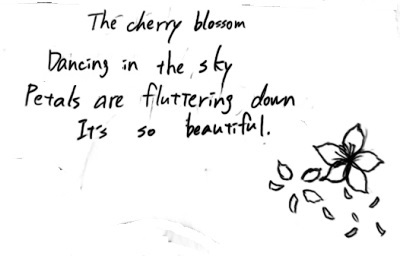 The cherry blossom
Dancing in the sky
Petals are fluttering down
It's so beautiful.